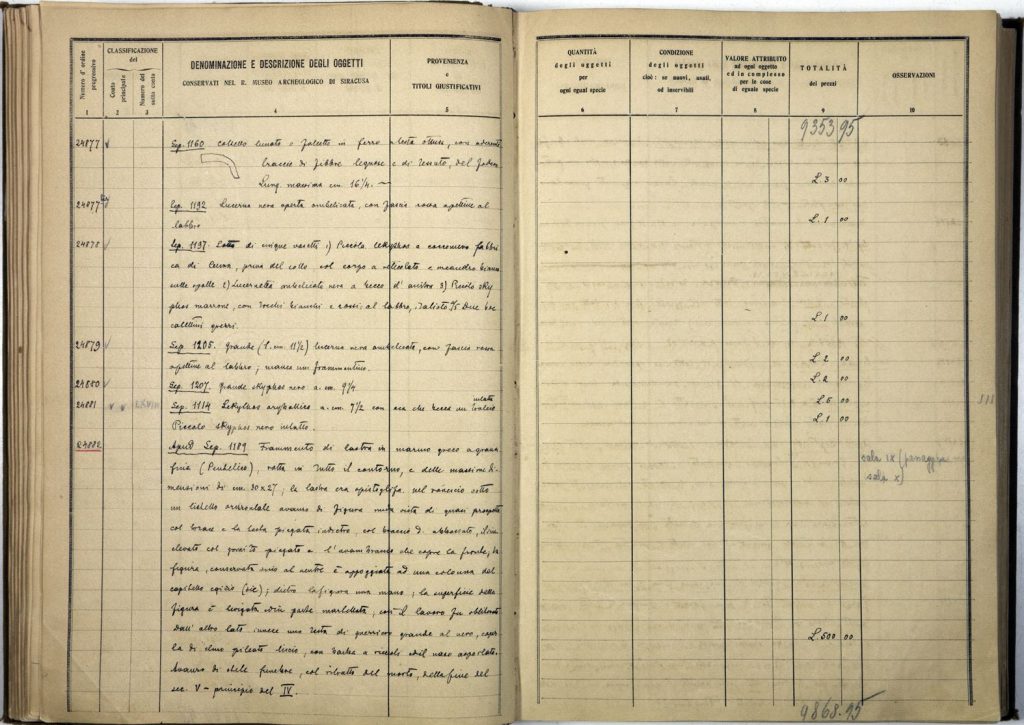 Numero d'ordine progressivo
CLASSIFICAZIONE
del
Conto principale
Numero del sotto conto
DENOMINAZIONE E DESCRIZIONE DEGLI OGGETTI
CONSERVATI NEL R. MUSEO ARCHEOLOGICO DI SIRACUSA
PROVENIENZA
e
TITOLI GIUSTIFICATIVI
1 2 3 4 5
24877 Sep. 1160 coltello lunato o falcetto in ferro a testa ottusa, con aderenti
traccie di fibbre legnose e di tessuto, del
Lung. massima cm. 16 1/4. —
24877 Sep. 1192 Lucerna nera aperta ombelicata, con fascia rossa a pettine al
labbro
24878 Sep. 1197. Lotto di cinque vasetti 1) Piccola lekythos a fabbri
ca di Cuma, priva del collo col corpo a reticolato e meandro bianco
sulle spalle 2) Lucernetta ombelicata nera a becco d'anitra 3) Piccolo sky
phos marrone, con tocchi bianchi e rossi al labbro, 4/5 Due bo
calettini grezzi.
24879 Sep. 1205. Grande (l. cm. 11 1/2) lucerna nera ombelicata, con fascia rossa
a pettine al labbro; manca un frammentino.
24880 Sep. 1207. Grande skyphos nero a. cm. 9 1/4
24881 LXVIII Sep. 1184 Lekythos a. cm. 7 1/2 con oca che becca un
Piccolo skyphos nero intatto.
24882 Apud Sep. 1189 Frammento di lastra in marmo greco a grana
fina (Pentelico), rotta in tutto il contorno, e delle massime di-
mensioni di cm. 30 x 27; la lastra era opistoglifa. nel rovescio sotto
un listello orizzontale avanzo di figura nuda vista di quasi prospetto
col torace e la testa piegata indietro, col braccio d. abbassato, il sin.
elevato col gomito piegato e l'avambraccio che copre la fronte, la
figura, conservata sino al ventre è appoggiata ad una colonna dal
capitello egizio (sic); dietro la figura una mano; la superficie della
figura è levigata in parte martellata, così il lavoro fu obliterato
Dall'altro lato invece una testa di guerriero grande al vero, coper
ta di elmo pileato liscio, con barba a riccioli ed il naso asportato.
Avanzo di stele funebre, col ritratto del morto, della fine del
sec. V – principio del IV.
QUANTITÀ
degli oggetti
per
ogni egual specie
CONDIZIONE
degli oggetti
cioè: se nuovi, usati,
od inservibili
VALORE ATTRIBUITO
ad ogni oggetto
ed in complesso
per le cose
di eguale specie
TOTALITÀ
dei prezzi
OSSERVAZIONI
6 7 8 9 10
9353 95
L. 3 00
L. 1 00
L. 1 00
L. 2 00
L. 2 00
L. 5 00
L. 1 00
sala IX
sala X)
L. 500 00
9868.95